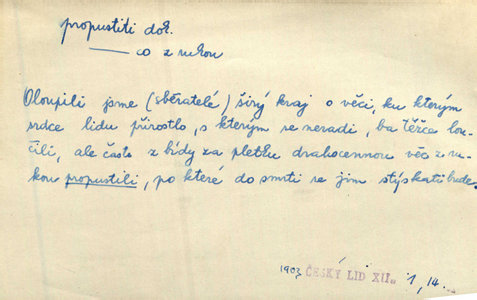 propustiti dok.
—— co z rukou
Oloupili jsme (sběratelé) širý kraj o věci, ku kterým
srdce lidu přirostlo, s kterým se neradi, ba těžce lou-
čili, ale často z bídy za pletku drahocennou věc z ru-
kou propustili, po které do smrti se jim stýskati bude.
1903 ČESKÝ LID XII. 1, 14.